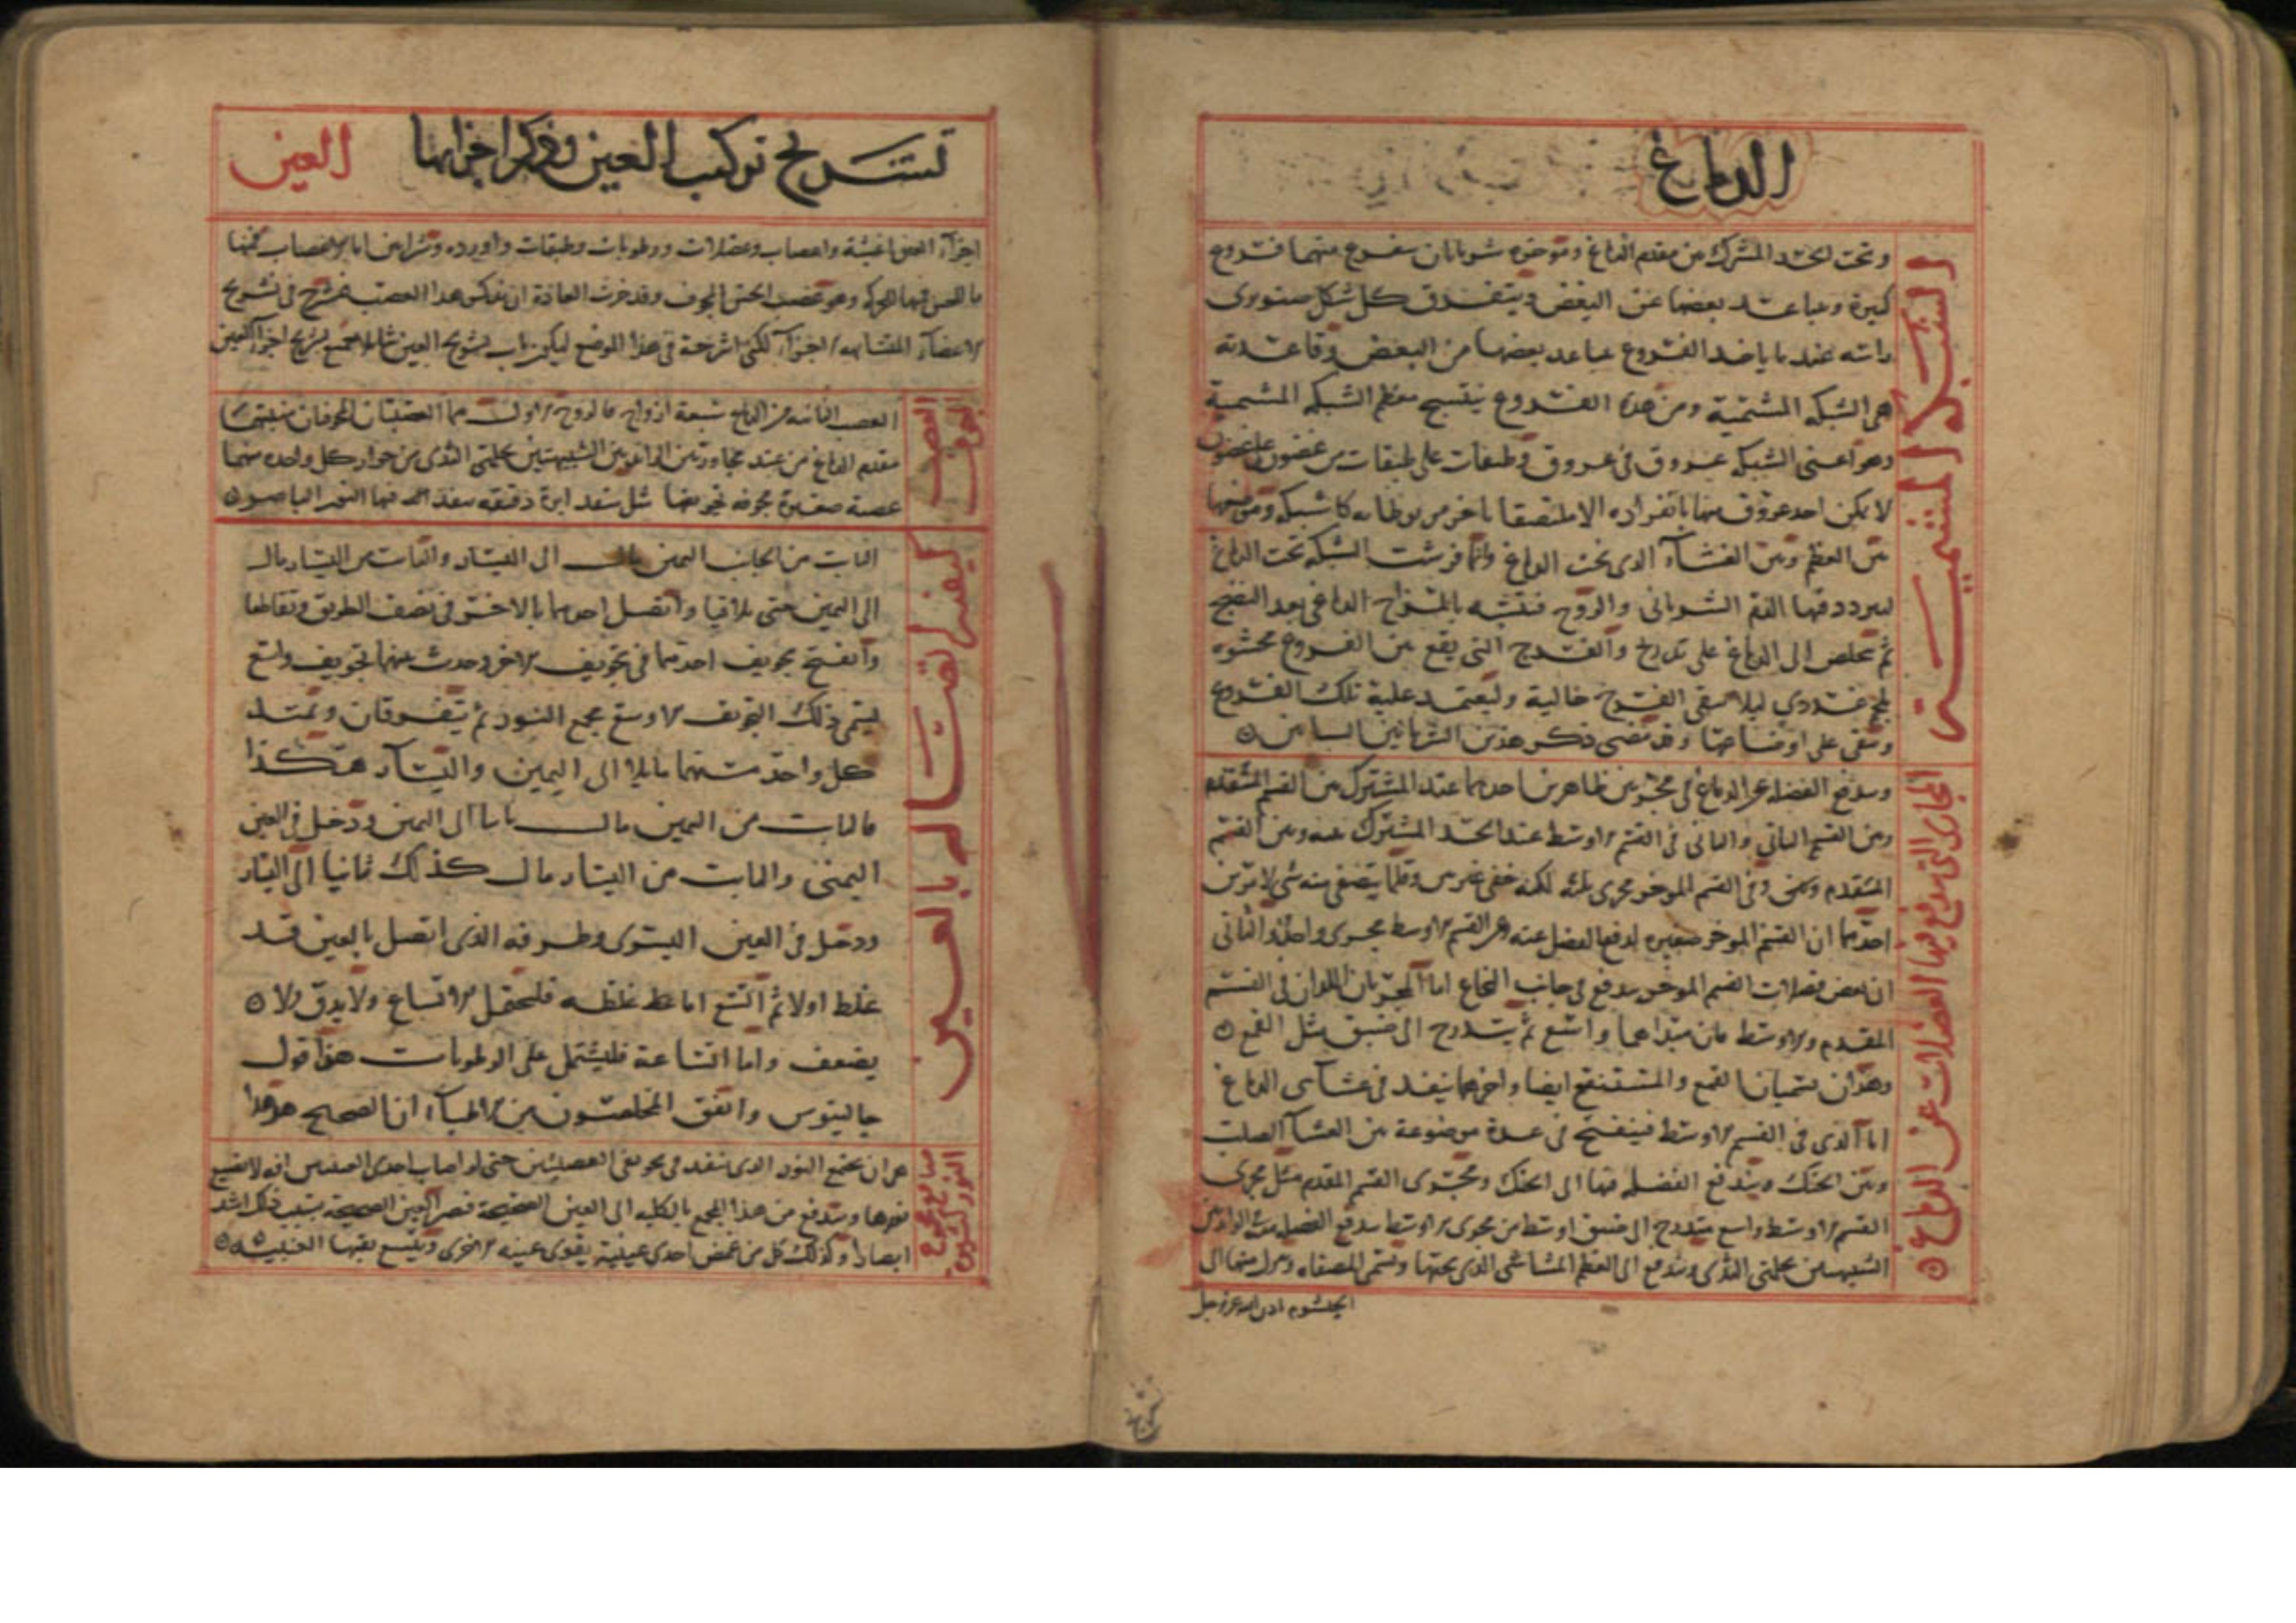 الدماغ
الشبكة المشيمية
وتحت الحد المشترك من مقدم الدماغ وموخره شريانان يتفرع منهما فروع
كثيرة وتباعد بعضها عن البعض ويتفرق كل شكل صنوبرى
راسه عند ما ياخذ الفروع تباعد بعضها من البعض وقاعدته
هى الشبكه المشيمية ومن هذه الفروع ينتسج معظم الشبكه المشيمية
وهو اعنى الشبكه عروق فى عروق وطبقات على طبقات من غضون على غضون
لا يمكن احد عروق منها بانفراده الا ملتصقا باخر مربوطا به كالشبكه وموضعها
بين العظم وبين الغشاء الذى تحت الدماغ وانما فرشت الشبكه تحت الدماغ
ليتردد فيها الدم الشريانى والروح فيتشبه بالمزاج الدماغى بعد النضج
ثم يتخلص الى الدماغ على تدريج والفرج التى يقع بين الفروع محشوه
بلحم غددي ليلا يبقى الفروج خالية وليعتمد علية تلك الفروع
وتبقى على اوضاعها وقد مضى ذكر هذين الشريانين
المجارى التى يندفع فيها الفضلات عن الدماغ
ويندفع الفضله عن الدماغ فى مجريين ظاهرين احدهما عند المشترك من القسم المتقدم
ومن القسم الثانى والثانى فى القسم الاوسط عند الحد المشترك بينه وبين القسم
احدهما ان القسم الموخر صغير يدفع الفضل عنه عن القسم الاوسط مجرى واحد والثانى
ان بعض فضلات القسم الموخر يندفع فى جانب النخاع اما المجريان اللذان فى القسم
المقدم والاوسط فان مبداهما واسع ثم يتدرج الى ضيق مثل القمع
وهذان يسميان القمع والمستنقع ايضا واخرهما ينفذ فى غشاءى الدماغ
اما الذى فى القسم الاوسط فينفتح فى غدة موضوعة بين الغشاء الصلب
وبين الحنك ويندفع الفضله فيها الى الحنك ومجرى القسم المقدم مثل مجرى
القسم الاوسط واسع يتدرج الى ضيق اوسط من مجرى الاوسط يدفع الفضله
الشبيهتين بحلمتى الثدى ويندفع الى العظم المشاشى الذى تحتها وتسمى المصفاه
الخيشوم اذن الله عز وجل
تشريح
تشريح تركيب العين وذكر اجزايها
العين
اجزاء العين اغشية واعصاب وعضلات ورطوبات وطبقات واورده وشرايين اما الاعصاب فمنها
ما للحس ومنها للحركه وهو عصب الحس المجوف وقد جرت العادة ان يذكر هذا العصب مشرح فى تشريح
الاعضاء المتشابهه الاجزاء لكنى اشرحه فى هذا الموضع ليكون باب تشريح العين شاملا لجميع تشريح اجزاء العين
العصب المجوف
العصب النابته من الدماغ سبعة ازواج فالزوج الاول هما العصبتان المجوفتان منبتهما
مقدم الدماغ من عند مجاورتين الزائدتين الشبيهتين بحلمتى الثدى من جوار كل واحده منهما
عصبة صغيرة مجوفه تجويفها مثل منفذ ابرة دقيقه ينفذ فيها النور الباصر
كيفية اتصاله بالعين
النابت من الجانب اليمين مال الى اليسار والنابت من اليسار مال
الى اليمين حتى تلاقيا واتصل احدهما بالاخر فى نصف الطريق وتقاطعا
وانفتح تجويف احدهما فى تجويف الاخر وحدث منهما تجويف واسع
يسمى ذلك التجويف الاوسع مجمع النور ثم يتفرقان وتمتد
كل واحد منهما مايلا الى اليمين واليسار هكذا
فالنابت من اليمين مال ثانيا الى اليمين ودخل فى العين
اليمنى والنابت من اليسار مال كذلك ثانيا الى اليسار
ودخل فى العين اليسرى وطرفه الذى اتصل بالعين قد
غلظ اولا ثم اتسع اما غلظه فليحتمل الاتساع ولا يدق ولا
يضعف واما اتساعه فليشتمل على الرطوبات هذا قول
جالينوس واتفق المخلصون من الاطباء ان الصحيح هو هذا
منافع مجمع النور كثيرة
هى ان يجتمع النور الذى ينفذ فى تجويفى العصبتين حتى لو اصاب احدى العينين افه لا يضيع
نورها ويندفع من هذا المجمع بالكليه الى العين الصحيحة فتصير العين الصحيحة بسبب ذلك اشد
ابصارا وكذلك كل من غمض احدى عينيه يقوى عينه الاخرى ويتسع ثقبها العنبيه